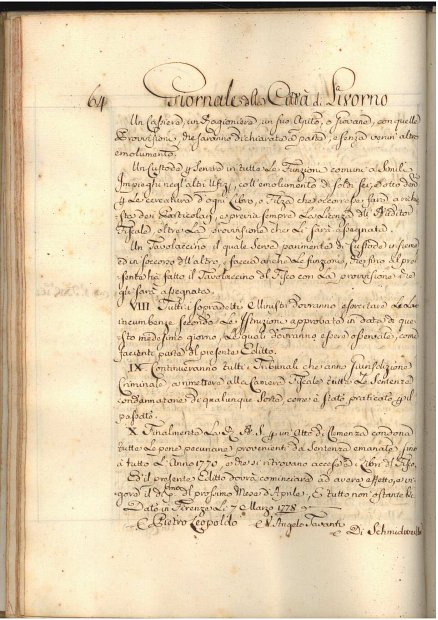 64 Giornale della Città di Livorno
Un Cassiere, un Ragioniere, un suo Ajuto, o Giovane, con quelle
Provvisioni, che saranno dichiarate a parte, e senza verun' altro
emolumento.
Un Custode che serva in tutte le Funzioni comuni a' simili
Impieghi negl'altri Ufizj, coll'emolumento di soldi sei, e otto
per le levatura d'ogni Libro, o Filza che occorresse fare a richie
sta dei Particolari, e previa sempre la licenza dell'Auditor
Fiscale, oltre la Provvisione che li sarà assegnata.
Un Tavolaccino il quale serva parimente di Custode insieme
ed in soccorso dell'altro, e faccia anche le funzioni, che fino al pre
sente ha fatto il Tavolaccino del Fisco con la provvisione che
gli sarà assegnata.
VIII. Tutti i sopradetti Ministri dovranno esercitare le loro
incumbenze secondo le Istruzioni approvate in data di que
sto medesimo giorno, le quali dovranno essere osservate, come
facienti parte del presente Editto.
IX. Continueranno tutti i Tribunali che anno Giurisdizione
Criminale a rimettere alla Camera Fiscale tutte le Sentenze
condannatorie di qualunque sorte, come è stato praticato per il
passato.
X. Finalmente La R. A. S. per un'Atto di Clemenza condona
tutte le pene pecuniarie provenienti da Sentenze emanate fino
a tutto l'Anno 1770, e che si ritrovano accese ai Libri del Fisco.
Ed il presente Editto dovrà cominciare ad avere effetto, e vi
gore il dì Primo del prossimo Mese d'Aprile, E tutto non ostante &c.
Dato in Firenze Li 7 Marzo 1778
Pietro Leopoldo V. Angelo Tavanti
Di Schmidweiller